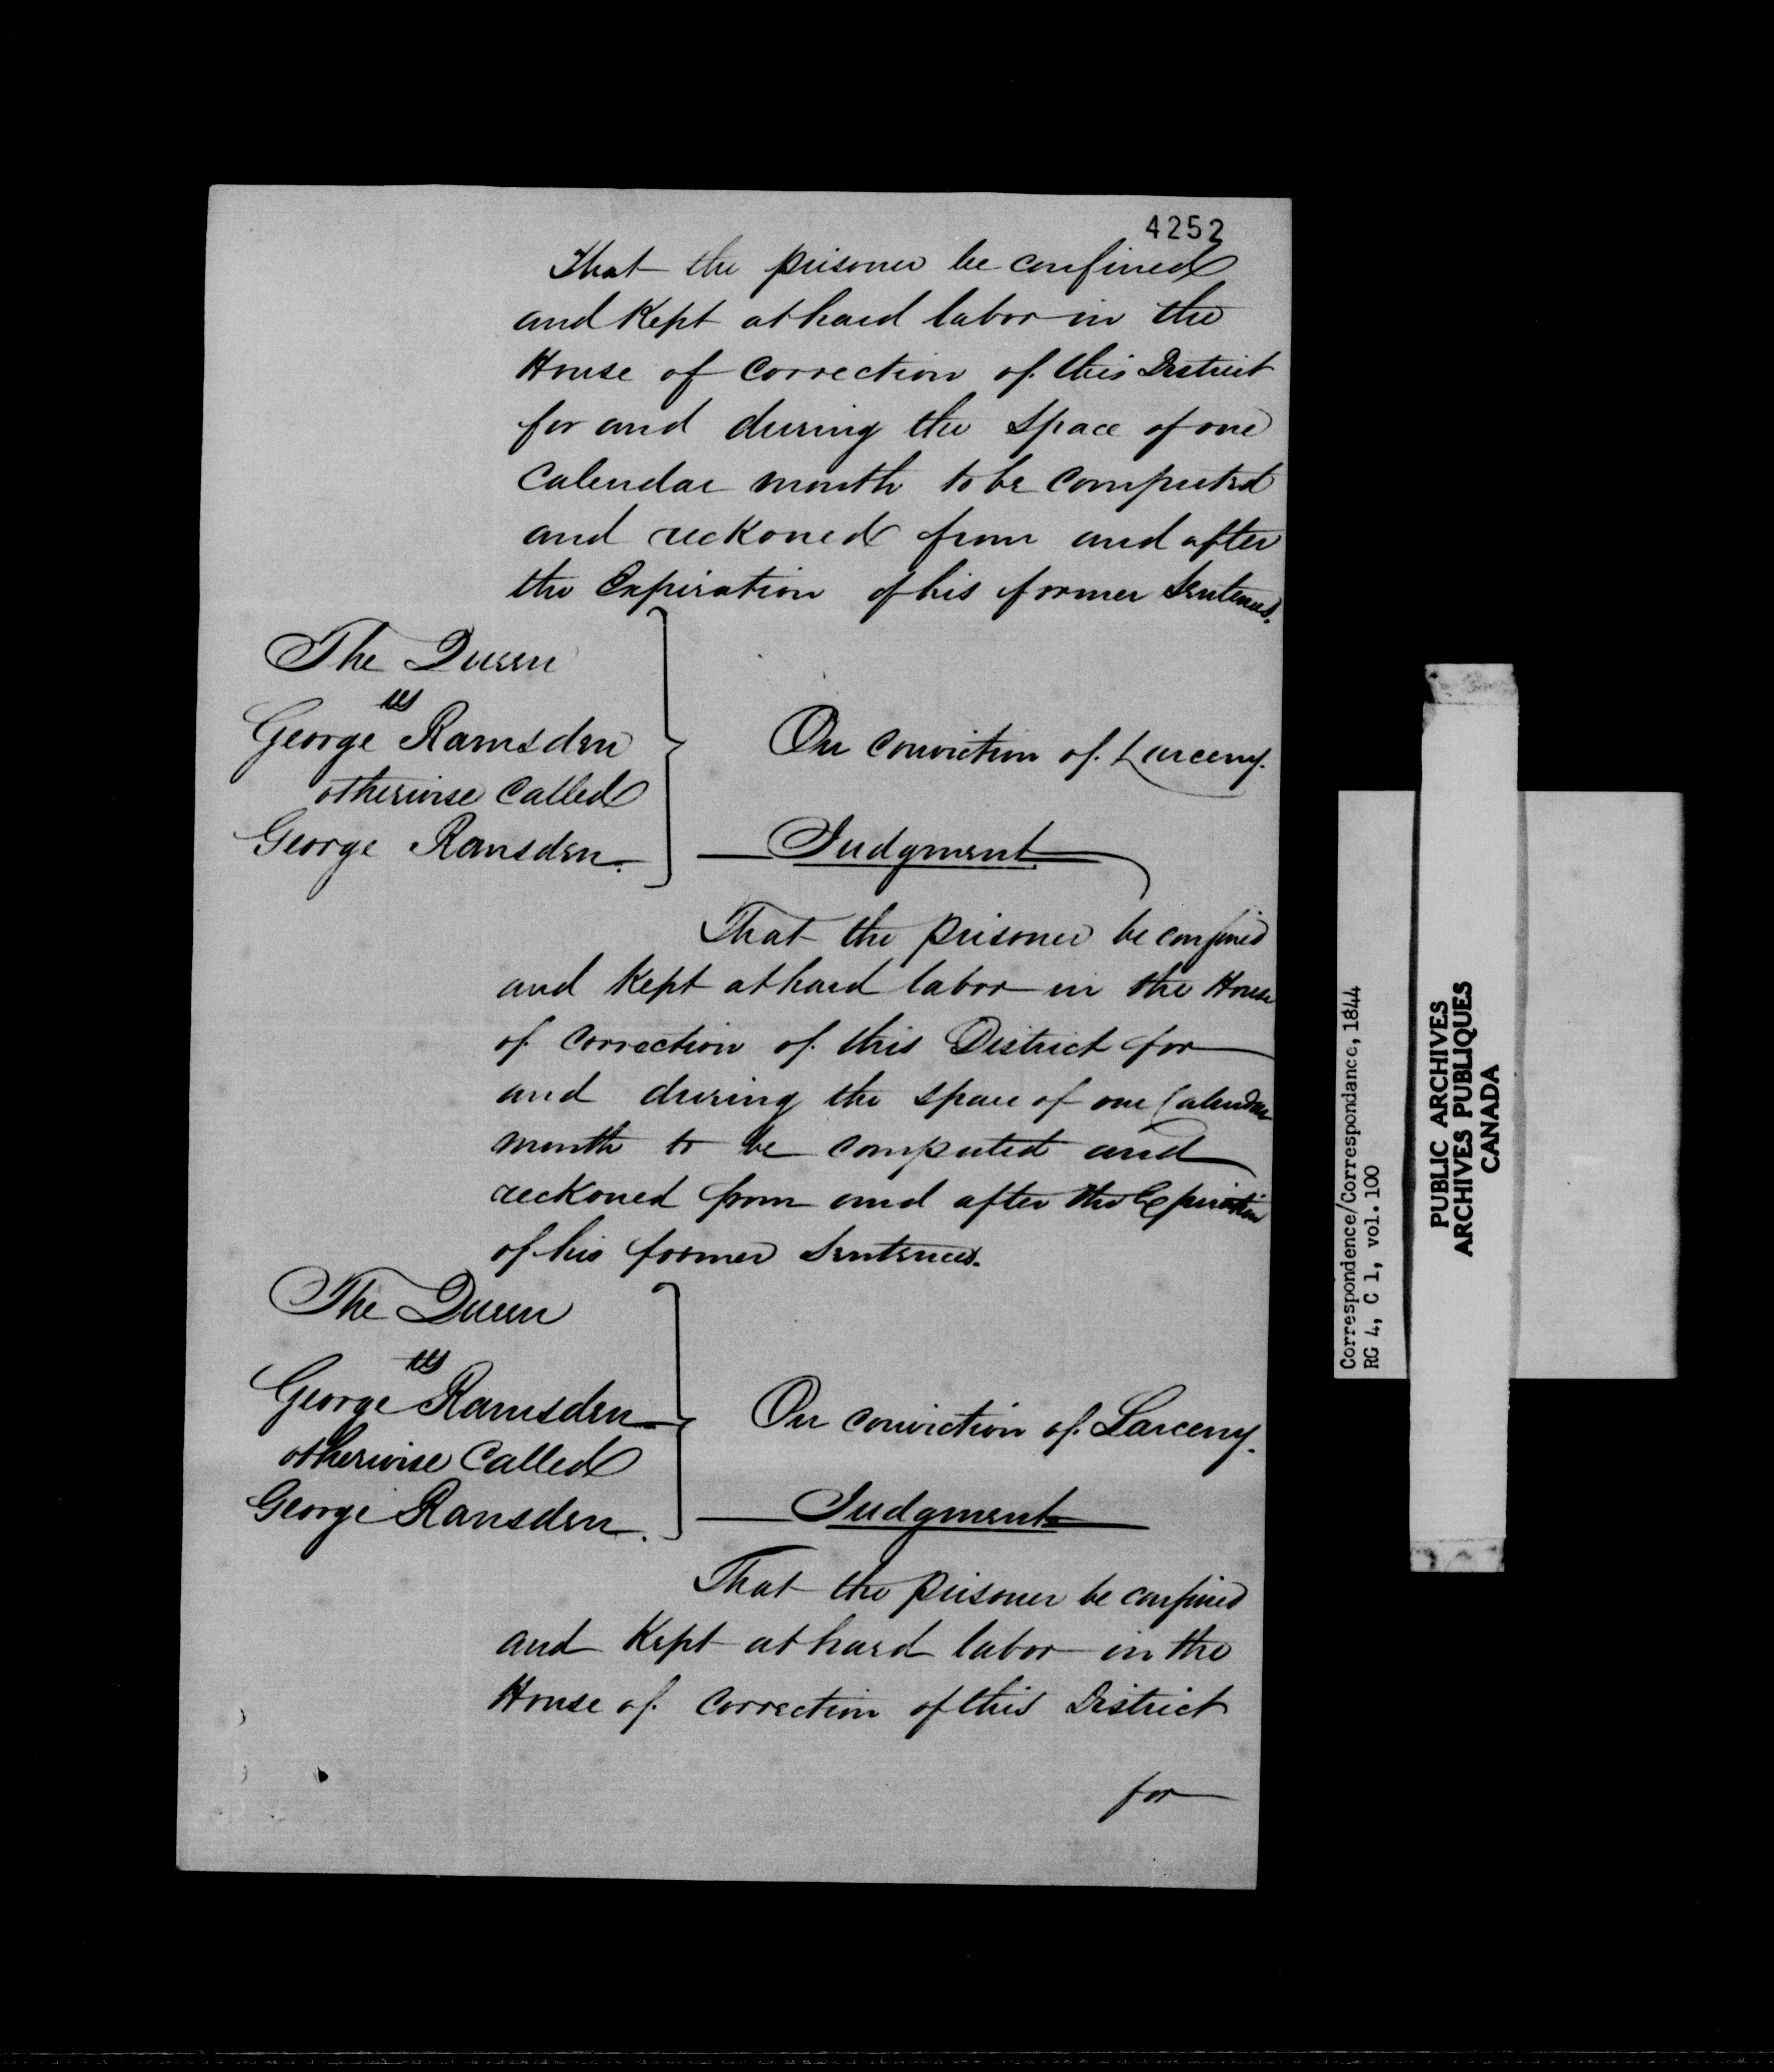 4252
That the prisoner be confined
and Kept at hard labor in the
House of Correction of this District
for and during the Space of one
Calendar month to be Computed
and reckoned from and after
the Expiration of his former Sentences.
The Queen
vs
George Ramsden
otherwise Called
George Ransden.
On Conviction of Larceny.
Judgment
That the prisoner be confined
and Kept at hard labor in the House
of Correction of this District for
and during the space of one Calendar
month to be Computed and
reckoned from and after the Expiration
of his former Sentences.
The Queen
vs
George Ramsden
otherwise Called
George Ransden.
On Conviction of Larceny.
Judgment
That the prisoner be confined
and Kept at hard labor in the
House of Correction of this District
for
Correspondence/Correspondance, 1844
RG 4, C 1, vol. 100
PUBLIC ARCHIVES
ARCHIVES PUBLIQUES
CANADA